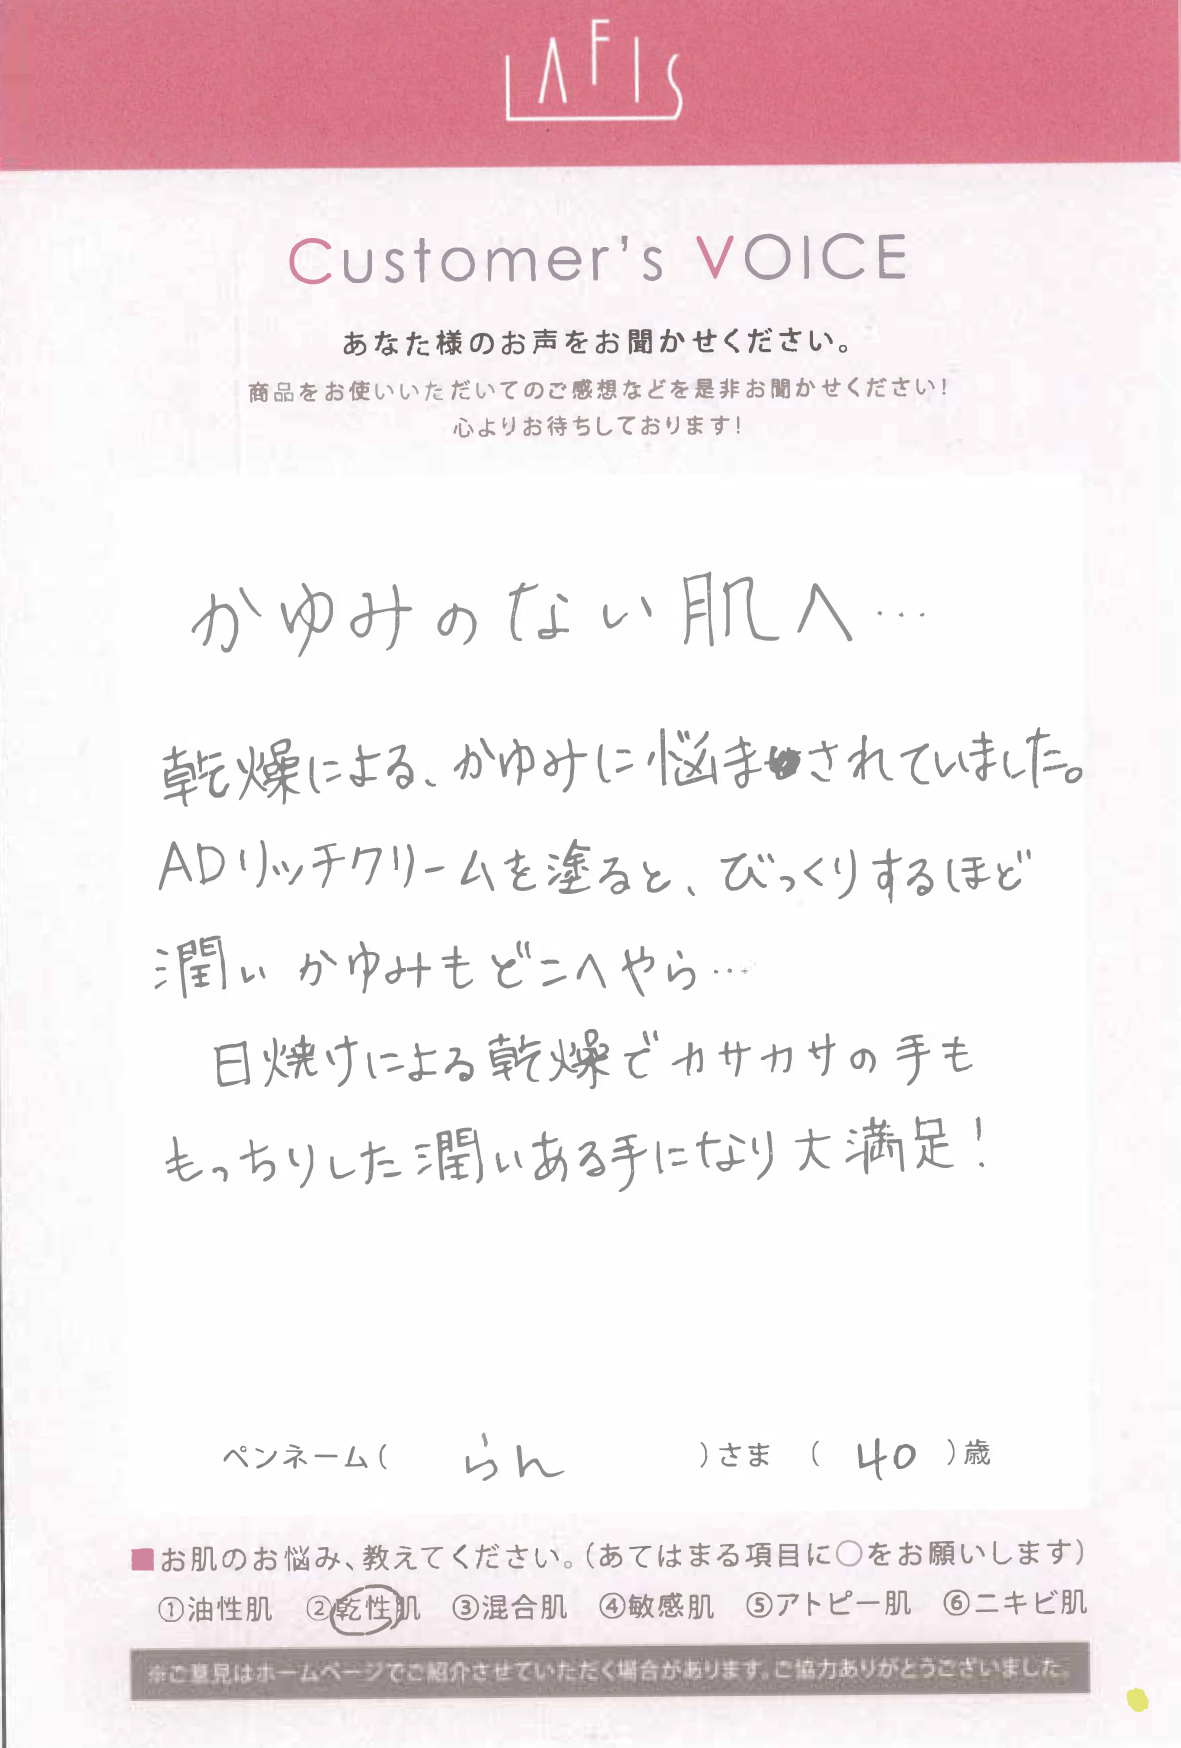 LAFIS
Customer's VOICE
あなた様のお声をお聞かせください。
商品をお使いいただいてのご感想などを是非お聞かせください!
心よりお待ちしております!
かゆみのない肌へ…
乾燥による、かゆみに悩まされていました。
ADリッチクリームを塗ると、びっくりするほど
潤い かゆみもどこへやら…
日焼けによる乾燥でカサカサの手も
もっちりした潤いある手になり大満足!
ペンネーム( らん )さま ( 40 )歳
■お肌のお悩み、教えてください。(あてはまる項目に○をお願いします)
①油性肌 ②乾性肌 ③混合肌 ④敏感肌 ⑤アトピー肌 ⑥ニキビ肌
※ご意見はホームページでご紹介させていただく場合があります。ご協力ありがとうございました。